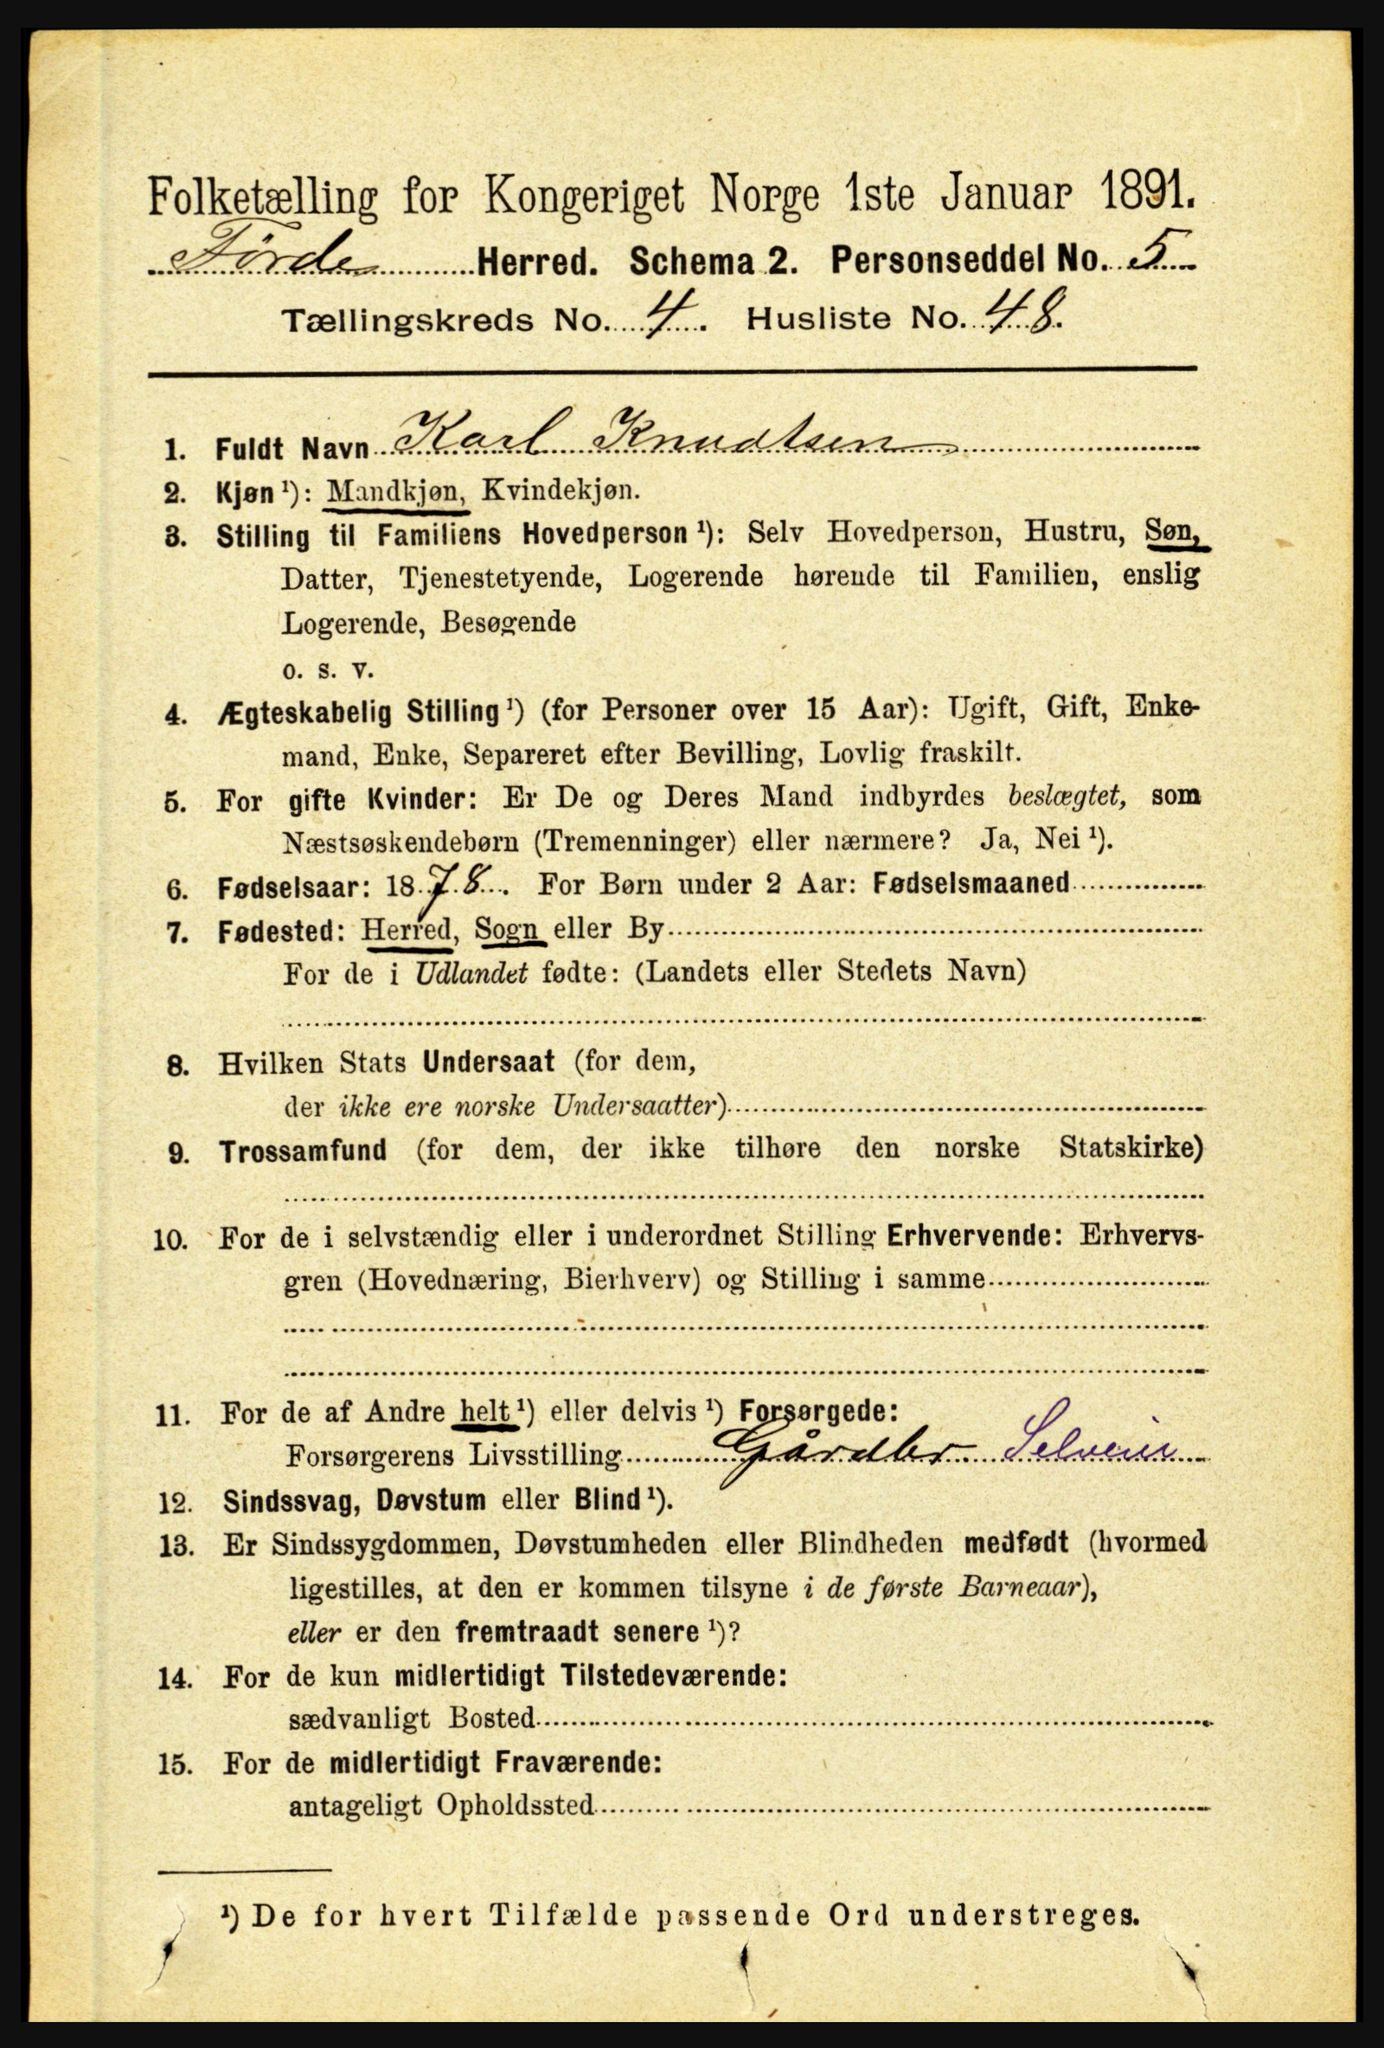 Folketælling for Kongeriget Norge 1ste Januar 1891.
Førde Herred. Schema 2. Personseddel No. 5
Tællingskreds No. 4. Husliste No. 48.
1. Fuldt Navn Karl Knudtsen
2. Kjøn ¹): Mandkjøn, Kvindekjøn.
3. Stilling til Familiens Hovedperson ¹): Selv Hovedperson, Hustru, Søn,
Datter, Tjenestetyende, Logerende hørende til Familien, enslig
Logerende, Besøgende
o. s. v.
4. Ægteskabelig Stilling ¹) (for Personer over 15 Aar): Ugift, Gift, Enke-
mand, Enke, Separeret efter Bevilling, Lovlig fraskilt.
5. For gifte Kvinder: Er De og Deres Mand indbyrdes beslægtet, som
Næstsøskendebørn (Tremenninger) eller nærmere? Ja, Nei ¹).
6. Fødselsaar: 1878. For Børn under 2 Aar: Fødselsmaaned
7. Fødested: Herred, Sogn eller By
For de i Udlandet fødte: (Landets eller Stedets Navn)
8. Hvilken Stats Undersaat (for dem,
der ikke ere norske Undersaatter)
9. Trossamfund (for dem, der ikke tilhøre den norske Statskirke)
10. For de i selvstændig eller i underordnet Stilling Erhvervende: Erhvervs-
gren (Hovednæring, Bierhverv) og Stilling i samme
11. For de af Andre helt ¹) eller delvis ¹) Forsørgede:
Forsørgerens Livsstilling Gårdbr Selveier
12. Sindssvag, Døvstum eller Blind ¹).
13. Er Sindssygdommen, Døvstumheden eller Blindheden medfødt (hvormed
ligestilles, at den er kommen tilsyne i de første Barneaar),
eller er den fremtraadt senere ¹)?
14. For de kun midlertidigt Tilstedeværende:
sædvanligt Bosted
15. For de midlertidigt Fraværende:
antageligt Opholdssted
¹) De for hvert Tilfælde passende Ord understreges.